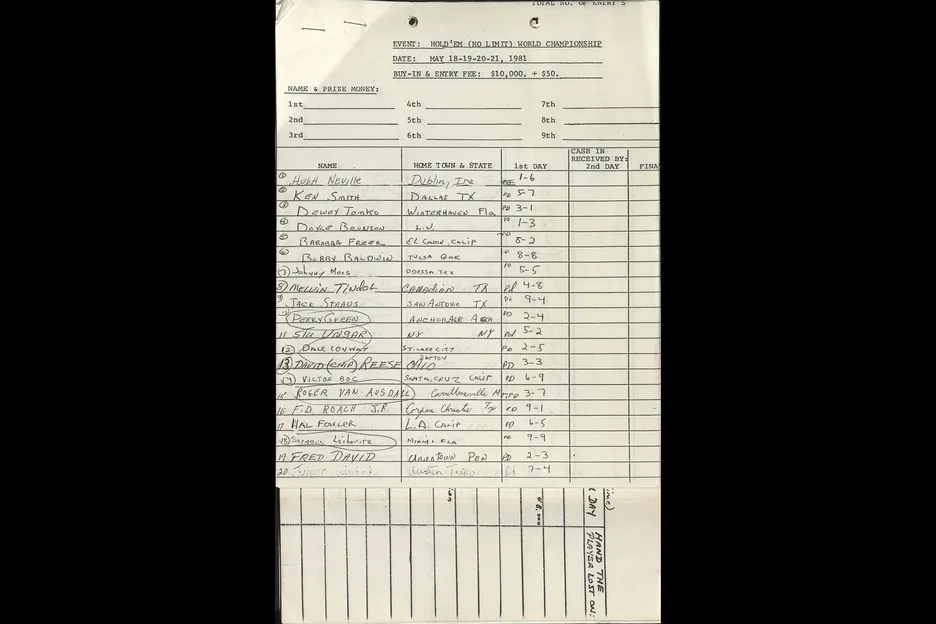 TOTAL NO. OF ENTRY'S
EVENT: HOLD'EM (NO LIMIT) WORLD CHAMPIONSHIP
DATE: MAY 18-19-20-21, 1981
BUY-IN & ENTRY FEE: $10,000. + $50.
NAME & PRIZE MONEY:
1st 4th 7th
2nd 5th 8th
3rd 6th 9th
NAME HOME TOWN & STATE 1st DAY CASH IN RECEIVED BY: 2nd DAY FINA
1 HUGH NEVILLE Dublin, Ire 1-6
KEN SMITH DALLAS TX PD 5-7
3 DEWEY TOMKO WINTERHAVEN Fla PD 3-1
4 DOYLE BRUNSON L.V. PD 1-3
5 BARABRA FREER EL CAJON, CALIF 8-2
6 BOBBY BALDWIN TULSA OAK P 8-8
7) Johnny Moss ODESSA TEX PD 5-5
8) MELVIN TINDOL CANADIAN TX Pd 4-8
9) JACK STRAUS SAN ANTONIO TX Pd 9-4
PERRY GREEN ANCHORAGE PD 2-4
11 STU UNGAR NY NY Pd 5-2
12) DALE CONWAY ST. LAKE CITY PD 2-5
13 DAVID (CHIP) REESE DAYTON OHIO PD 3-3
14) VICTOR BOC SANTA, CRUZ CALIF PD 6-9
15 ROGER VAN AUSDALL Caruthersville PD 3-7
16 F.D. ROACH J.R. Corpus Christie Tx PD 9-1
17 HAL FOWLER L.A. CALIF PD 6-5
18 SEYMOUR Leibowitz MIAMI FLA PD 9-9
19 FRED DAVID UNIONTOWN PEN PD 2-3
20 Pd 7-4
DAY
HAND THE
PLAYER LOST ON: